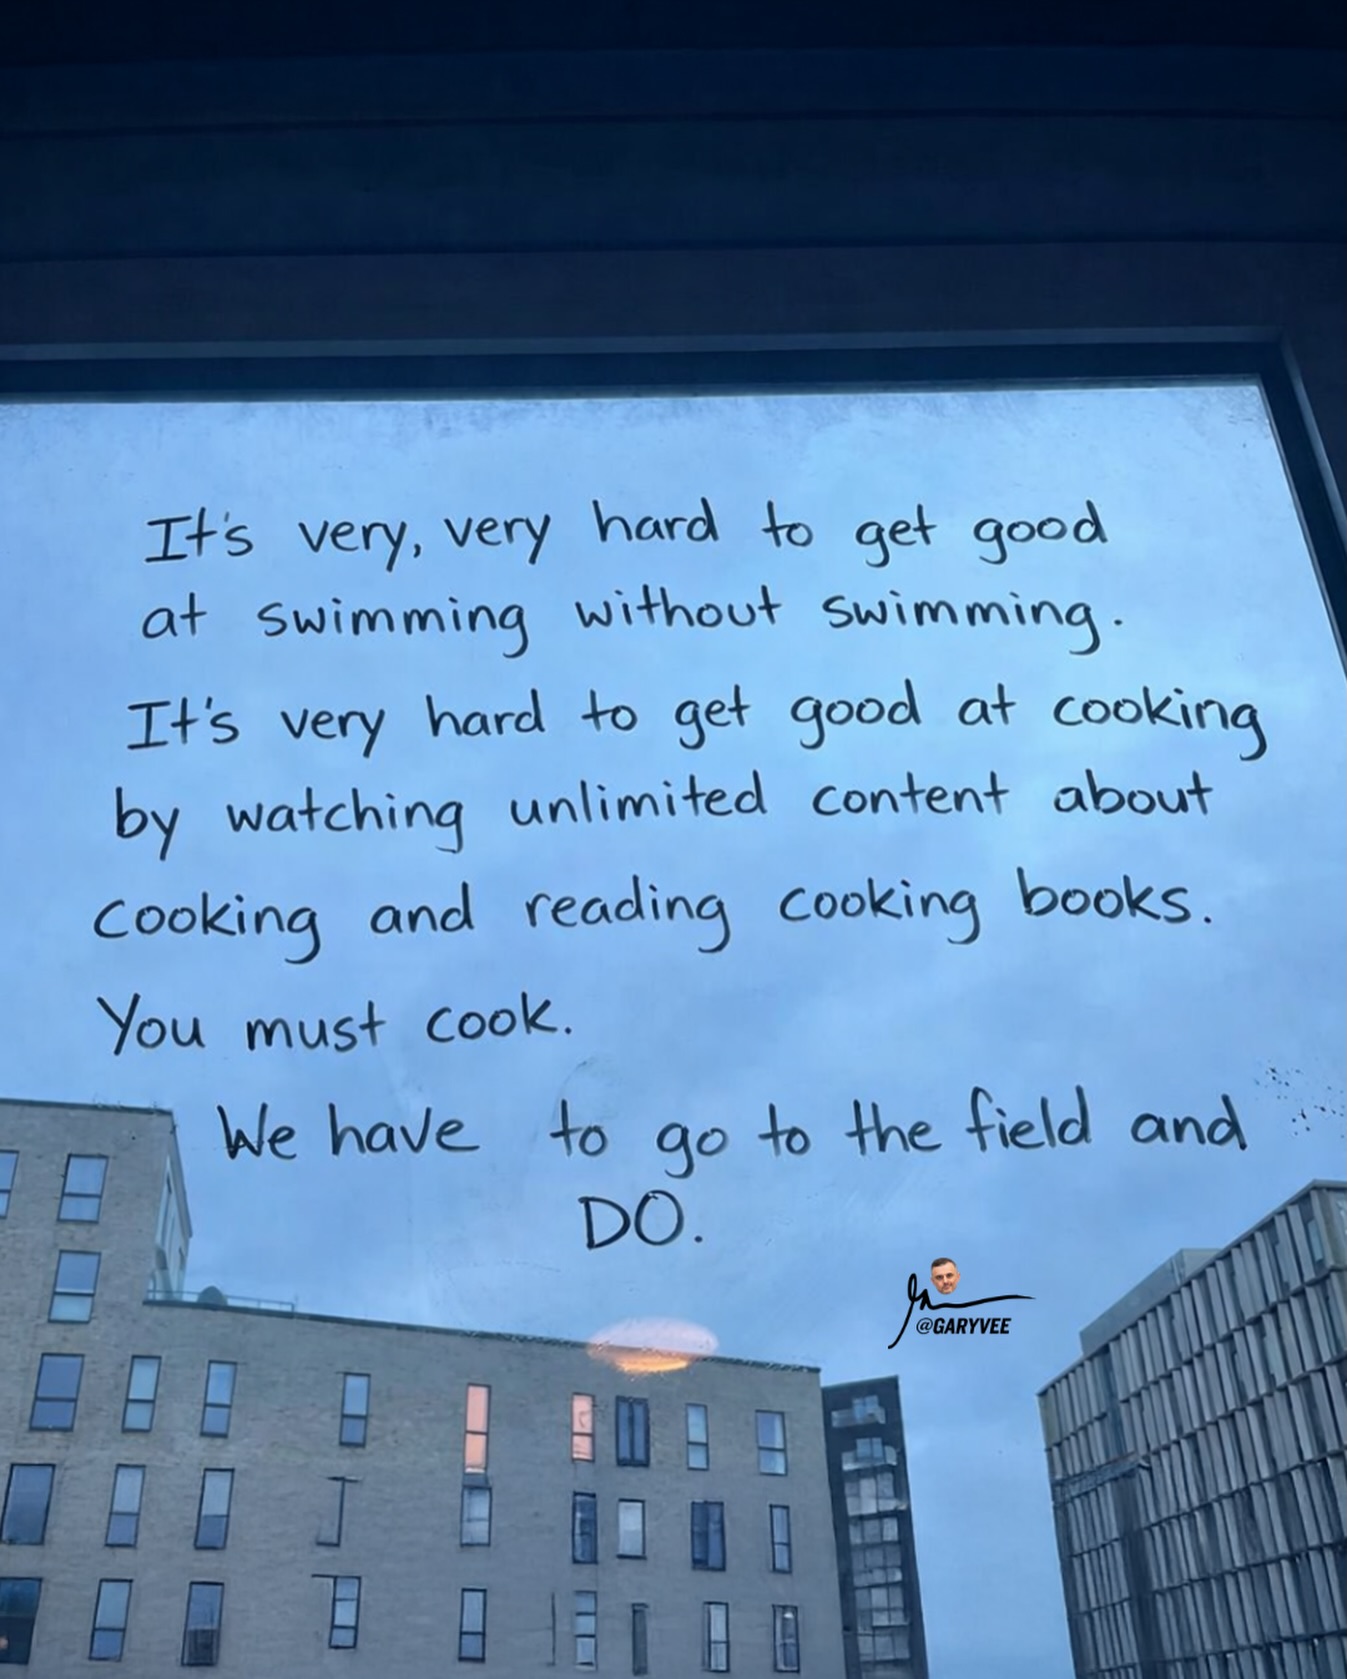 It's very, very hard to get good
at swimming without swimming.
It's very hard to get good at cooking
by watching unlimited content about
cooking and reading cooking books.
You must cook.
We have to go to the field and
DO.
@GARYVEE